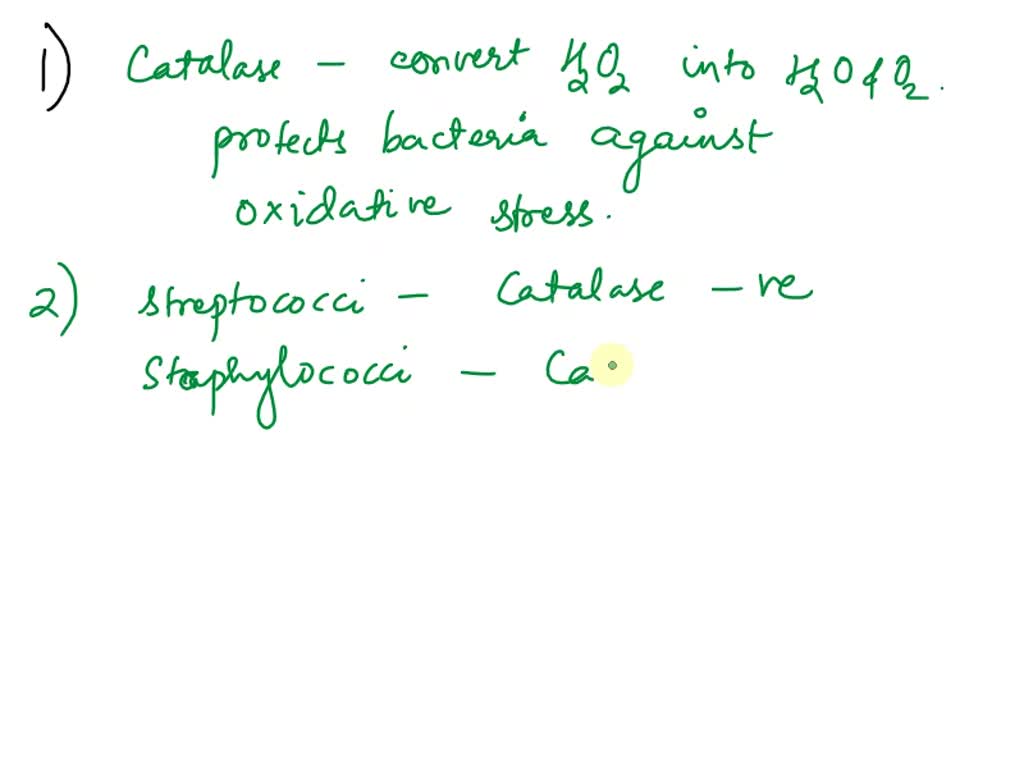 1) Catalase - convert H2O2 into H2O & O2.
protects bacteria against
oxidative stress.
2) streptococci - Catalase -ve
Staphylococci - Ca